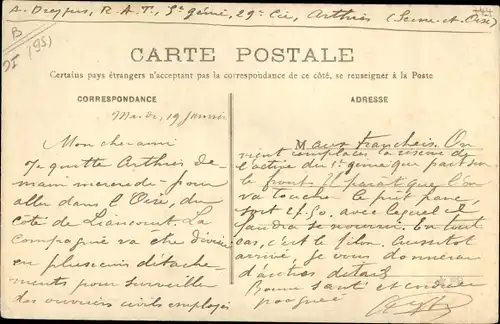 A. Dreyfus, R.A.T., 5e génie, 29e Cie, Arthies (Seine-et-Oise)
B
(95)
CARTE POSTALE
Certains pays étrangers n'acceptant pas la correspondance de ce côté, se renseigner à la Poste
CORRESPONDANCE
Mardi, 19 Janvier
Mon cher ami
Je quitte Arthies de-
main mercredi pour
aller dans l'Oise, du
côté de Liancourt. La
Compagnie va être divisée
en plusieurs détache-
ments pour surveiller
des ouvriers civils employés
ADRESSE
M aux tranchées. On
vient remplacer la réserve de
l'active du 5e génie qui part sur
le front. Il paraît que l'on
va toucher le prêt franc,
soit 2f.50, avec lequel il
faudra se nourrir. En tout
cas, c'est le filon. Aussitôt
arrivé, je vous donnerai
d'autres détails
Bonne santé et cordiale
poignée